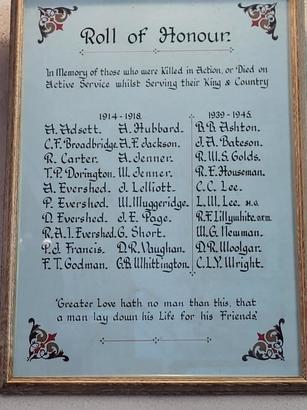 Roll of Honour.
In Memory of those who were Killed in Action, or Died on
Active Service whilst Serving their King & Country
1914-1918. 1939-1945.
A. Adsett. A. Hubbard. B.B. Ashton.
C.F. Broadbridge. A.E. Jackson. J.A. Bateson.
R. Carter. A. Jenner. R.W.S. Golds.
T.P. Dorington. W. Jenner. R.E. Houseman.
A. Evershed. J. Lelliott. C.C. Lee.
P. Evershed. W. Muggeridge. L.W. Lee. M.G.
D. Evershed. J.E. Page. R.F. Lillywhite, D.F.M.
R.A.I. Evershed. G. Short. W.G. Newman.
P.J. Francis. D.R. Vaughan. D.R. Woolgar.
F.T. Godman. G.B. Whittington. C.L.Y. Wright.
'Greater Love hath no man than this, that
a man lay down his Life for his Friends'